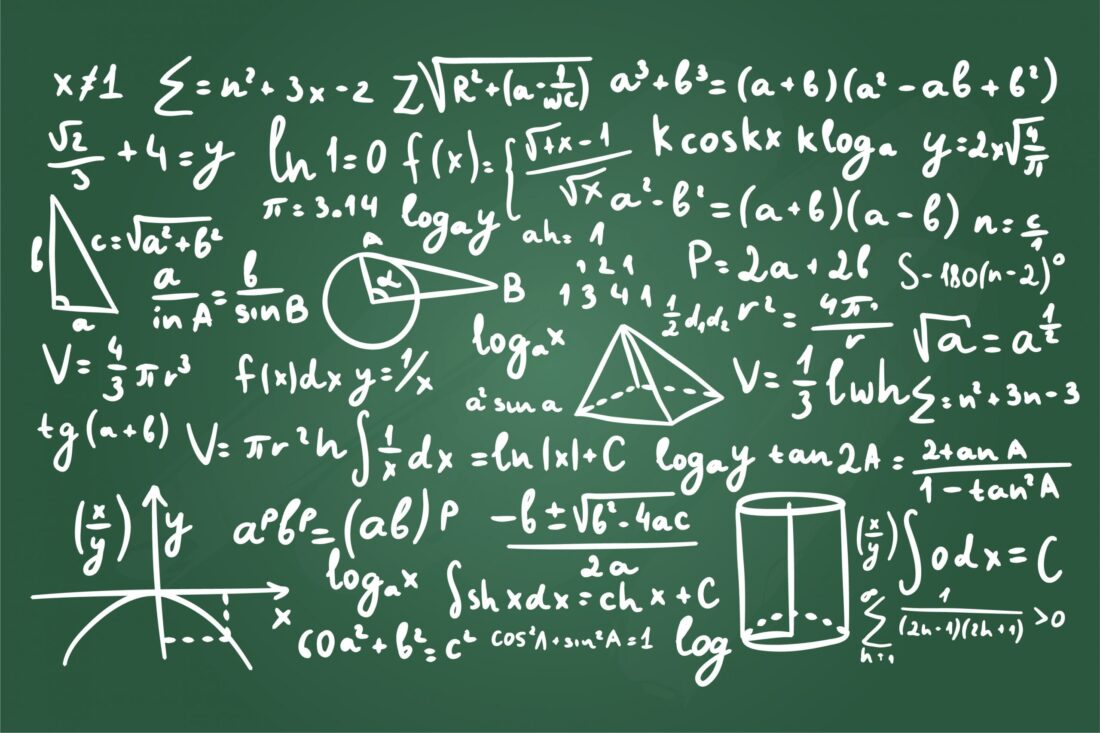 x≠1 Σ=n²+3x-2 Z√(R²+(a-1/wc)) a³+b³=(a+b)(a²-ab+b²)
√2/3+4=y ln1=0 f(x)={√+x-1/√x kcoskx kloga y=2x√4/π
π=3.14 logay a²-b²=(a+b)(a-b) n=c/1
b c=√a²+b² a
a/inA=b/sinB
A α B
ah=1
1 2 1
1 3 4 1
P=2a+2b S-180(n-2)°
½d₁d₂ r²=4π/r √a=a^½
V=4/3πr³ f(x)dx y=1/x logₐx V=1/3lwh Σ=n²+3n-3
a²suna
tg(a+b) V=πr²h ∫1/x dx=ln|x|+C logay tan2A=2+anA/1-tan²A
(x/y) y x
aᵖbᵖ=(ab)p -b±√b²-4ac/2a (x/y) ∫odx=C
logₐx ∫shxdx=chx+C
60a²+b²=c² cos²A+sin²A=1 log Σ 1/(2h-1)(2h+1)>0